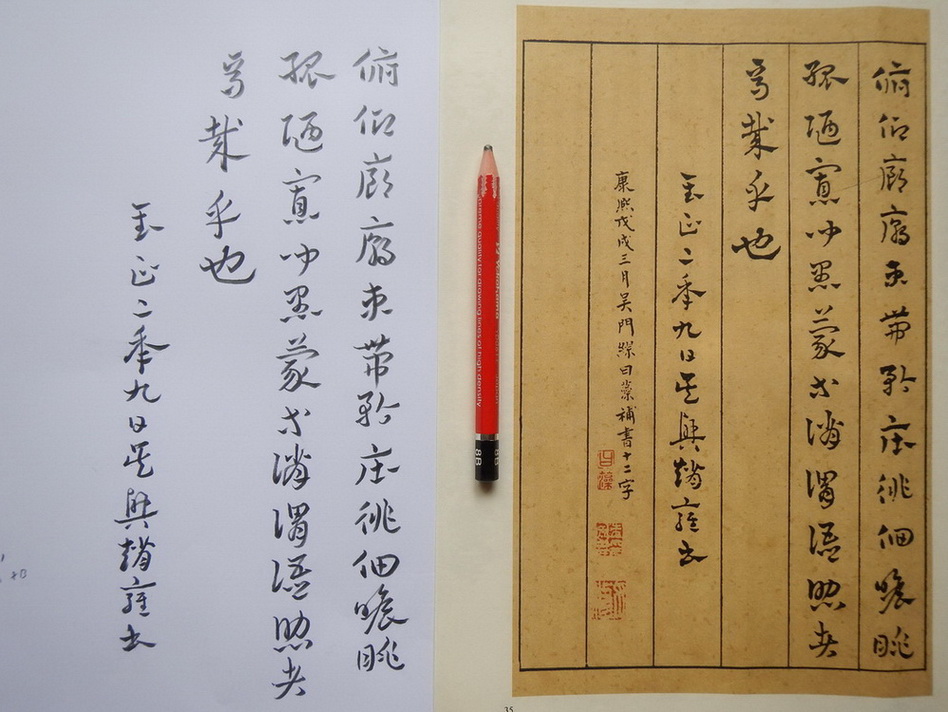 俯仰廊廟束帶矜莊徘徊瞻眺
孤陋寡聞愚蒙等誚謂語助者
焉哉乎也
至正二年九日吳興趙雍書
俯仰廊廟束帶矜莊徘徊瞻眺
孤陋寡聞愚蒙等誚謂語助者
焉哉乎也
至正二年九日吳興趙雍書
康熙戊戌三月吳門繆曰藻補書十二字
8B
8B
35